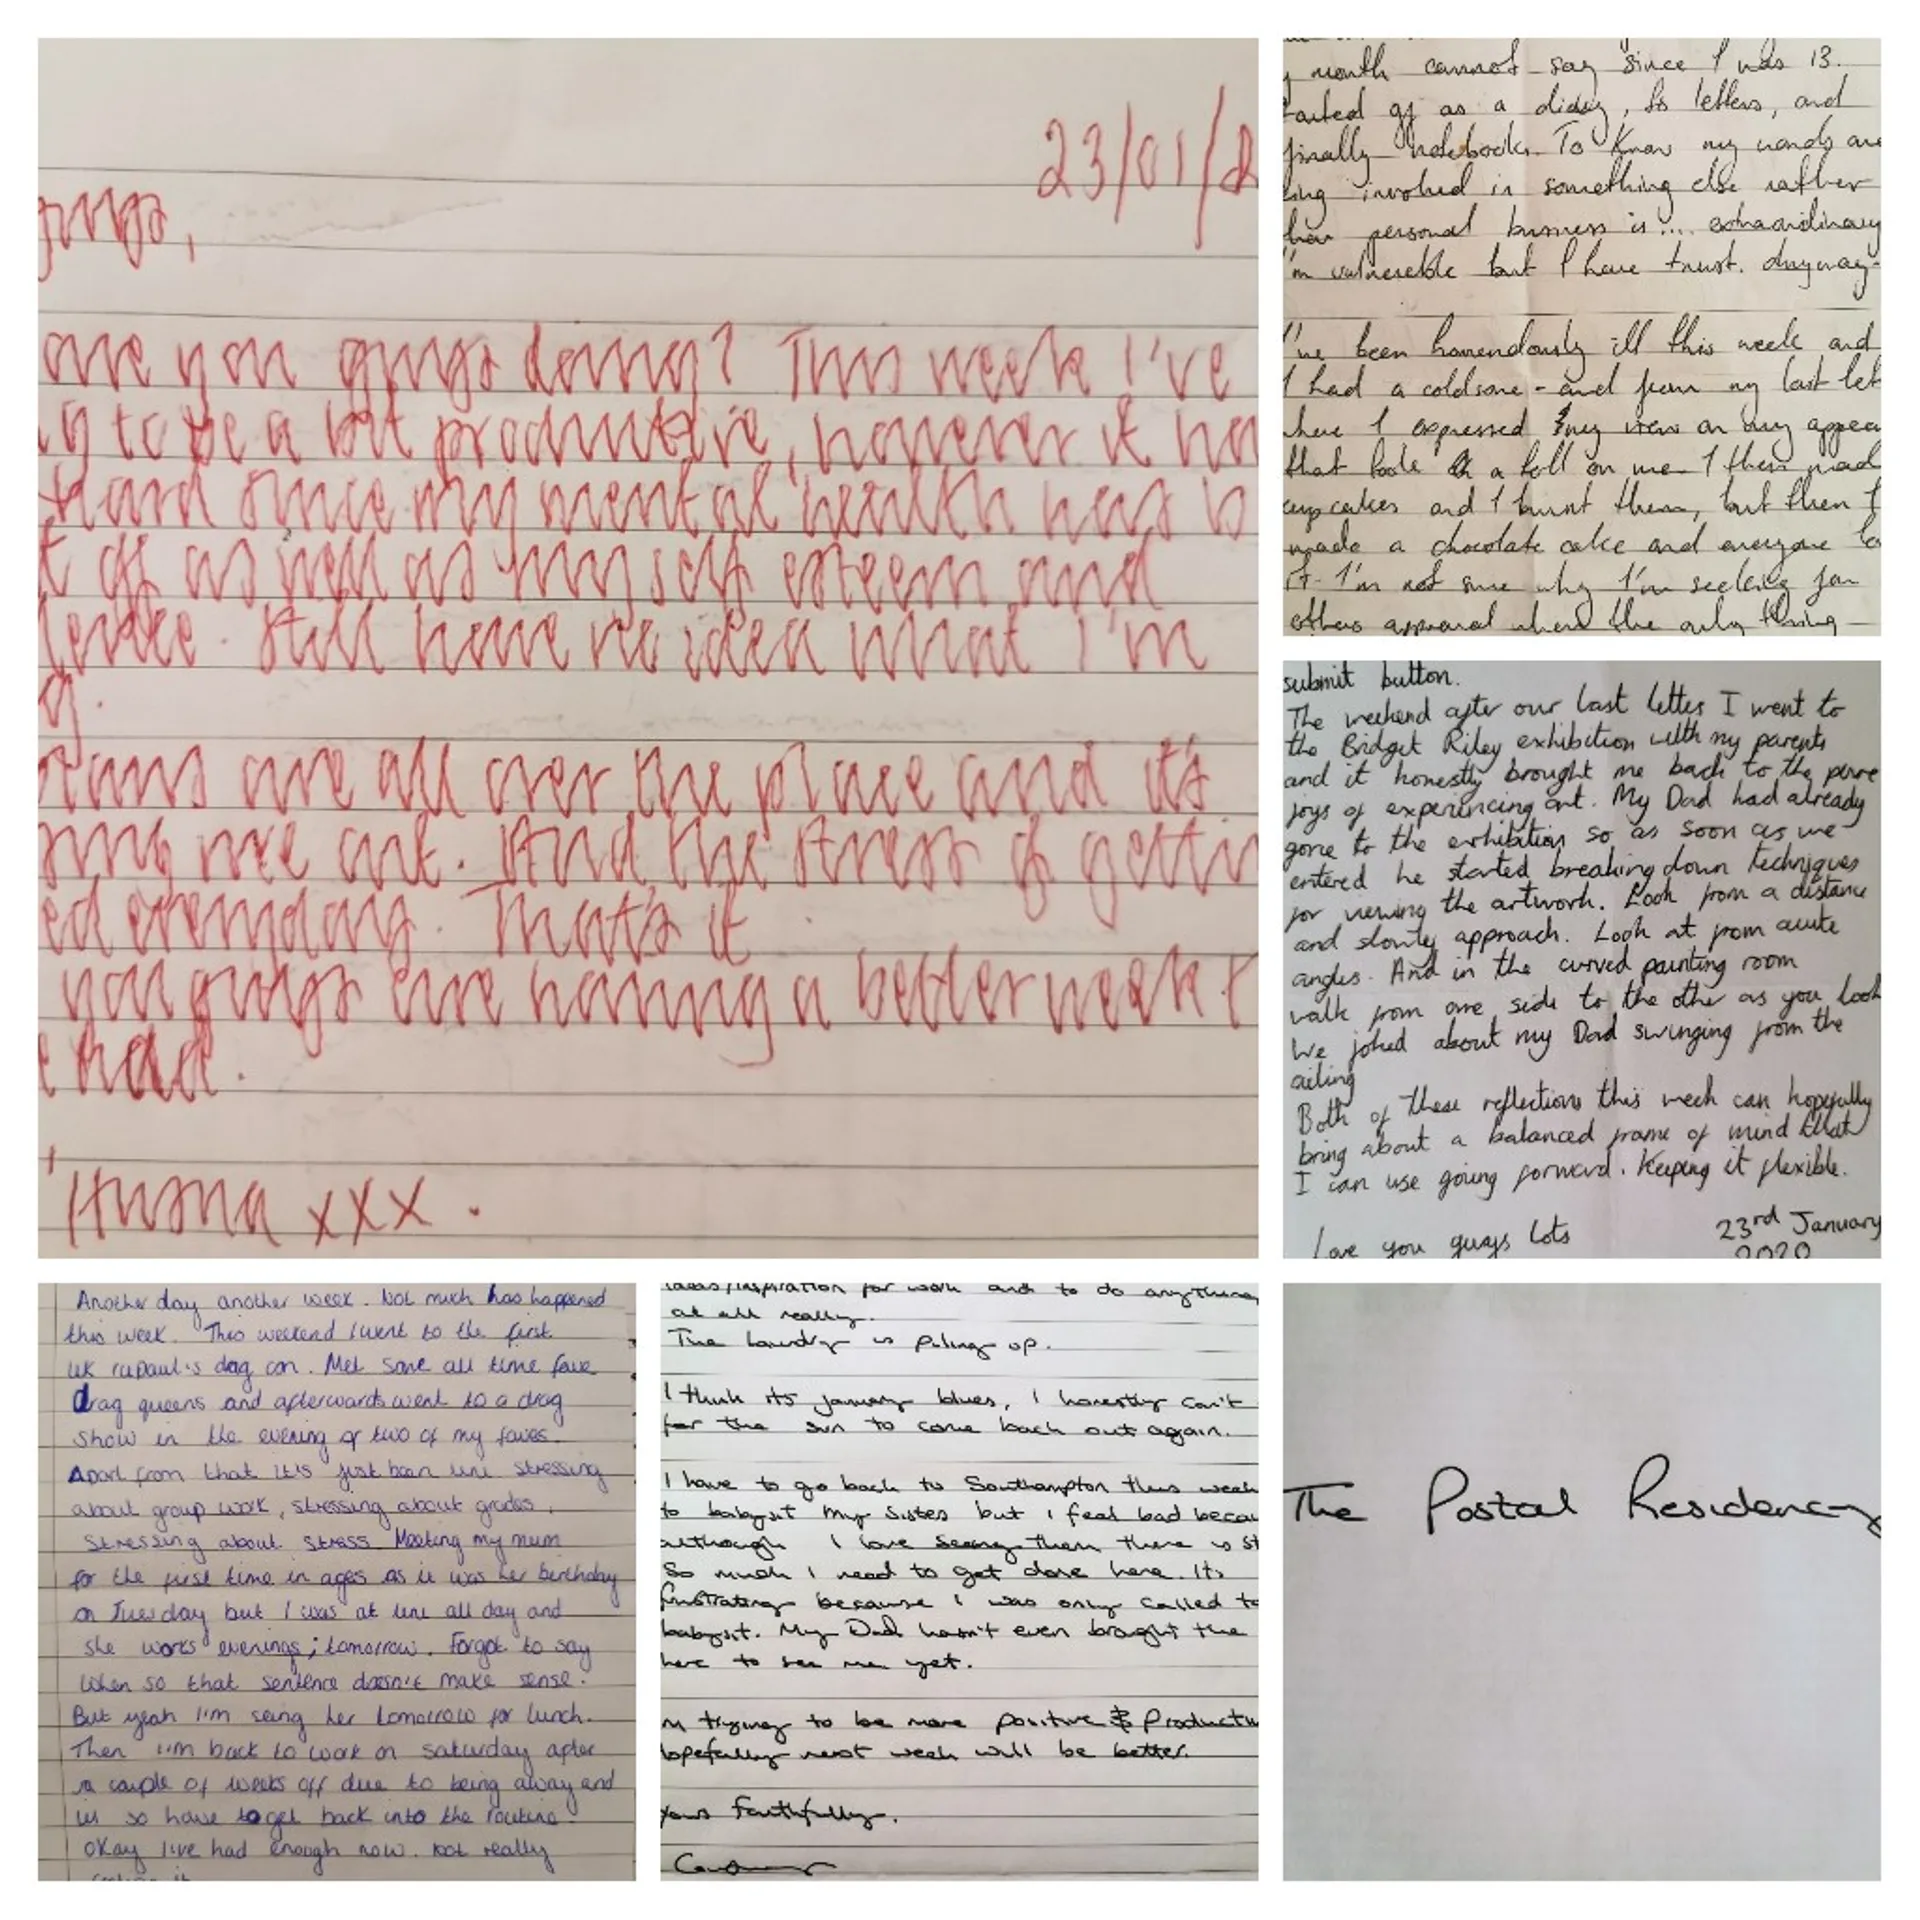 23/01/2
guys,
are you guys doing? This week I've
to be a bit productive, however it ha
hard since my mental health has b
off as well as my self esteem and
Still have no idea what I'm
are all over the place and it's
me out. And the stress of gettin
ed everyday. That's it
you guys are having a better week t
had.
Huma xxx.
month cannot say since I was 13.
arted off as a diary, to letters, and
finally notebooks. To know my words are
ing involved in something else rather
personal business is... extraordinary
I'm vulnerable but I have trust. Anyway-
I've been horrendously ill this week and
I had a coldsore - and from my last let
where I expressed my view on my appea
that took a toll on me. I then mad
cupcakes and I burnt them, but then I
made a chocolate cake and everyone lo
it. I'm not sure why I'm seeking for
others approval when the only thing
submit button.
The weekend after our last letter I went to
the Bridget Riley exhibition with my parents
and it honestly brought me back to the pure
joys of experiencing art. My Dad had already
gone to the exhibition so as soon as we
entered he started breaking down techniques
for viewing the artwork. Look from a distance
and slowly approach. Look at from acute
angles. And in the curved painting room
walk from one side to the other as you look
We joked about my Dad swinging from the
ceiling
Both of these reflections this week can hopefully
bring about a balanced frame of mind that
I can use going forward. Keeping it flexible.
Love you guys lots
23rd January
2020
Another day another week. Not much has happened
this week. This weekend I went to the first
UK rupaul's drag con. Met some all time fave
drag queens and afterwards went to a drag
show in the evening of two of my faves.
Apart from that it's just been uni stressing
about group work, stressing about grades,
stressing about stress. Meeting my mum
for the first time in ages as it was her birthday
on Tuesday but I was at uni all day and
she works evenings; tomorrow. Forgot to say
when so that sentence doesn't make sense.
But yeah I'm seeing her tomorrow for lunch.
Then I'm back to work on saturday after
a couple of weeks off due to being away and
ill so have to get back into the routine.
Okay I've had enough now. Not really
ideas/inspiration for work and to do anything
at all really.
The laundry is piling up.
I think its january blues, I honestly can't
for the sun to come back out again.
I have to go back to Southampton this week
to babysit my sisters but I feel bad becau
although I love seeing them there is st
So much I need to get done here. Its
frustrating because I was only called to
babysit. My Dad hasn't even brought the
here to see me yet.
m trying to be more positive & Productiv
hopefully next week will be better.
Yours Faithfully.
The Postal Residency